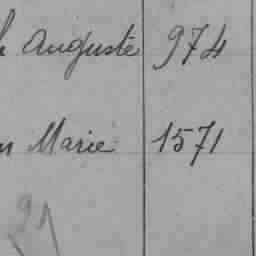 Auguste 974
Marie 1571